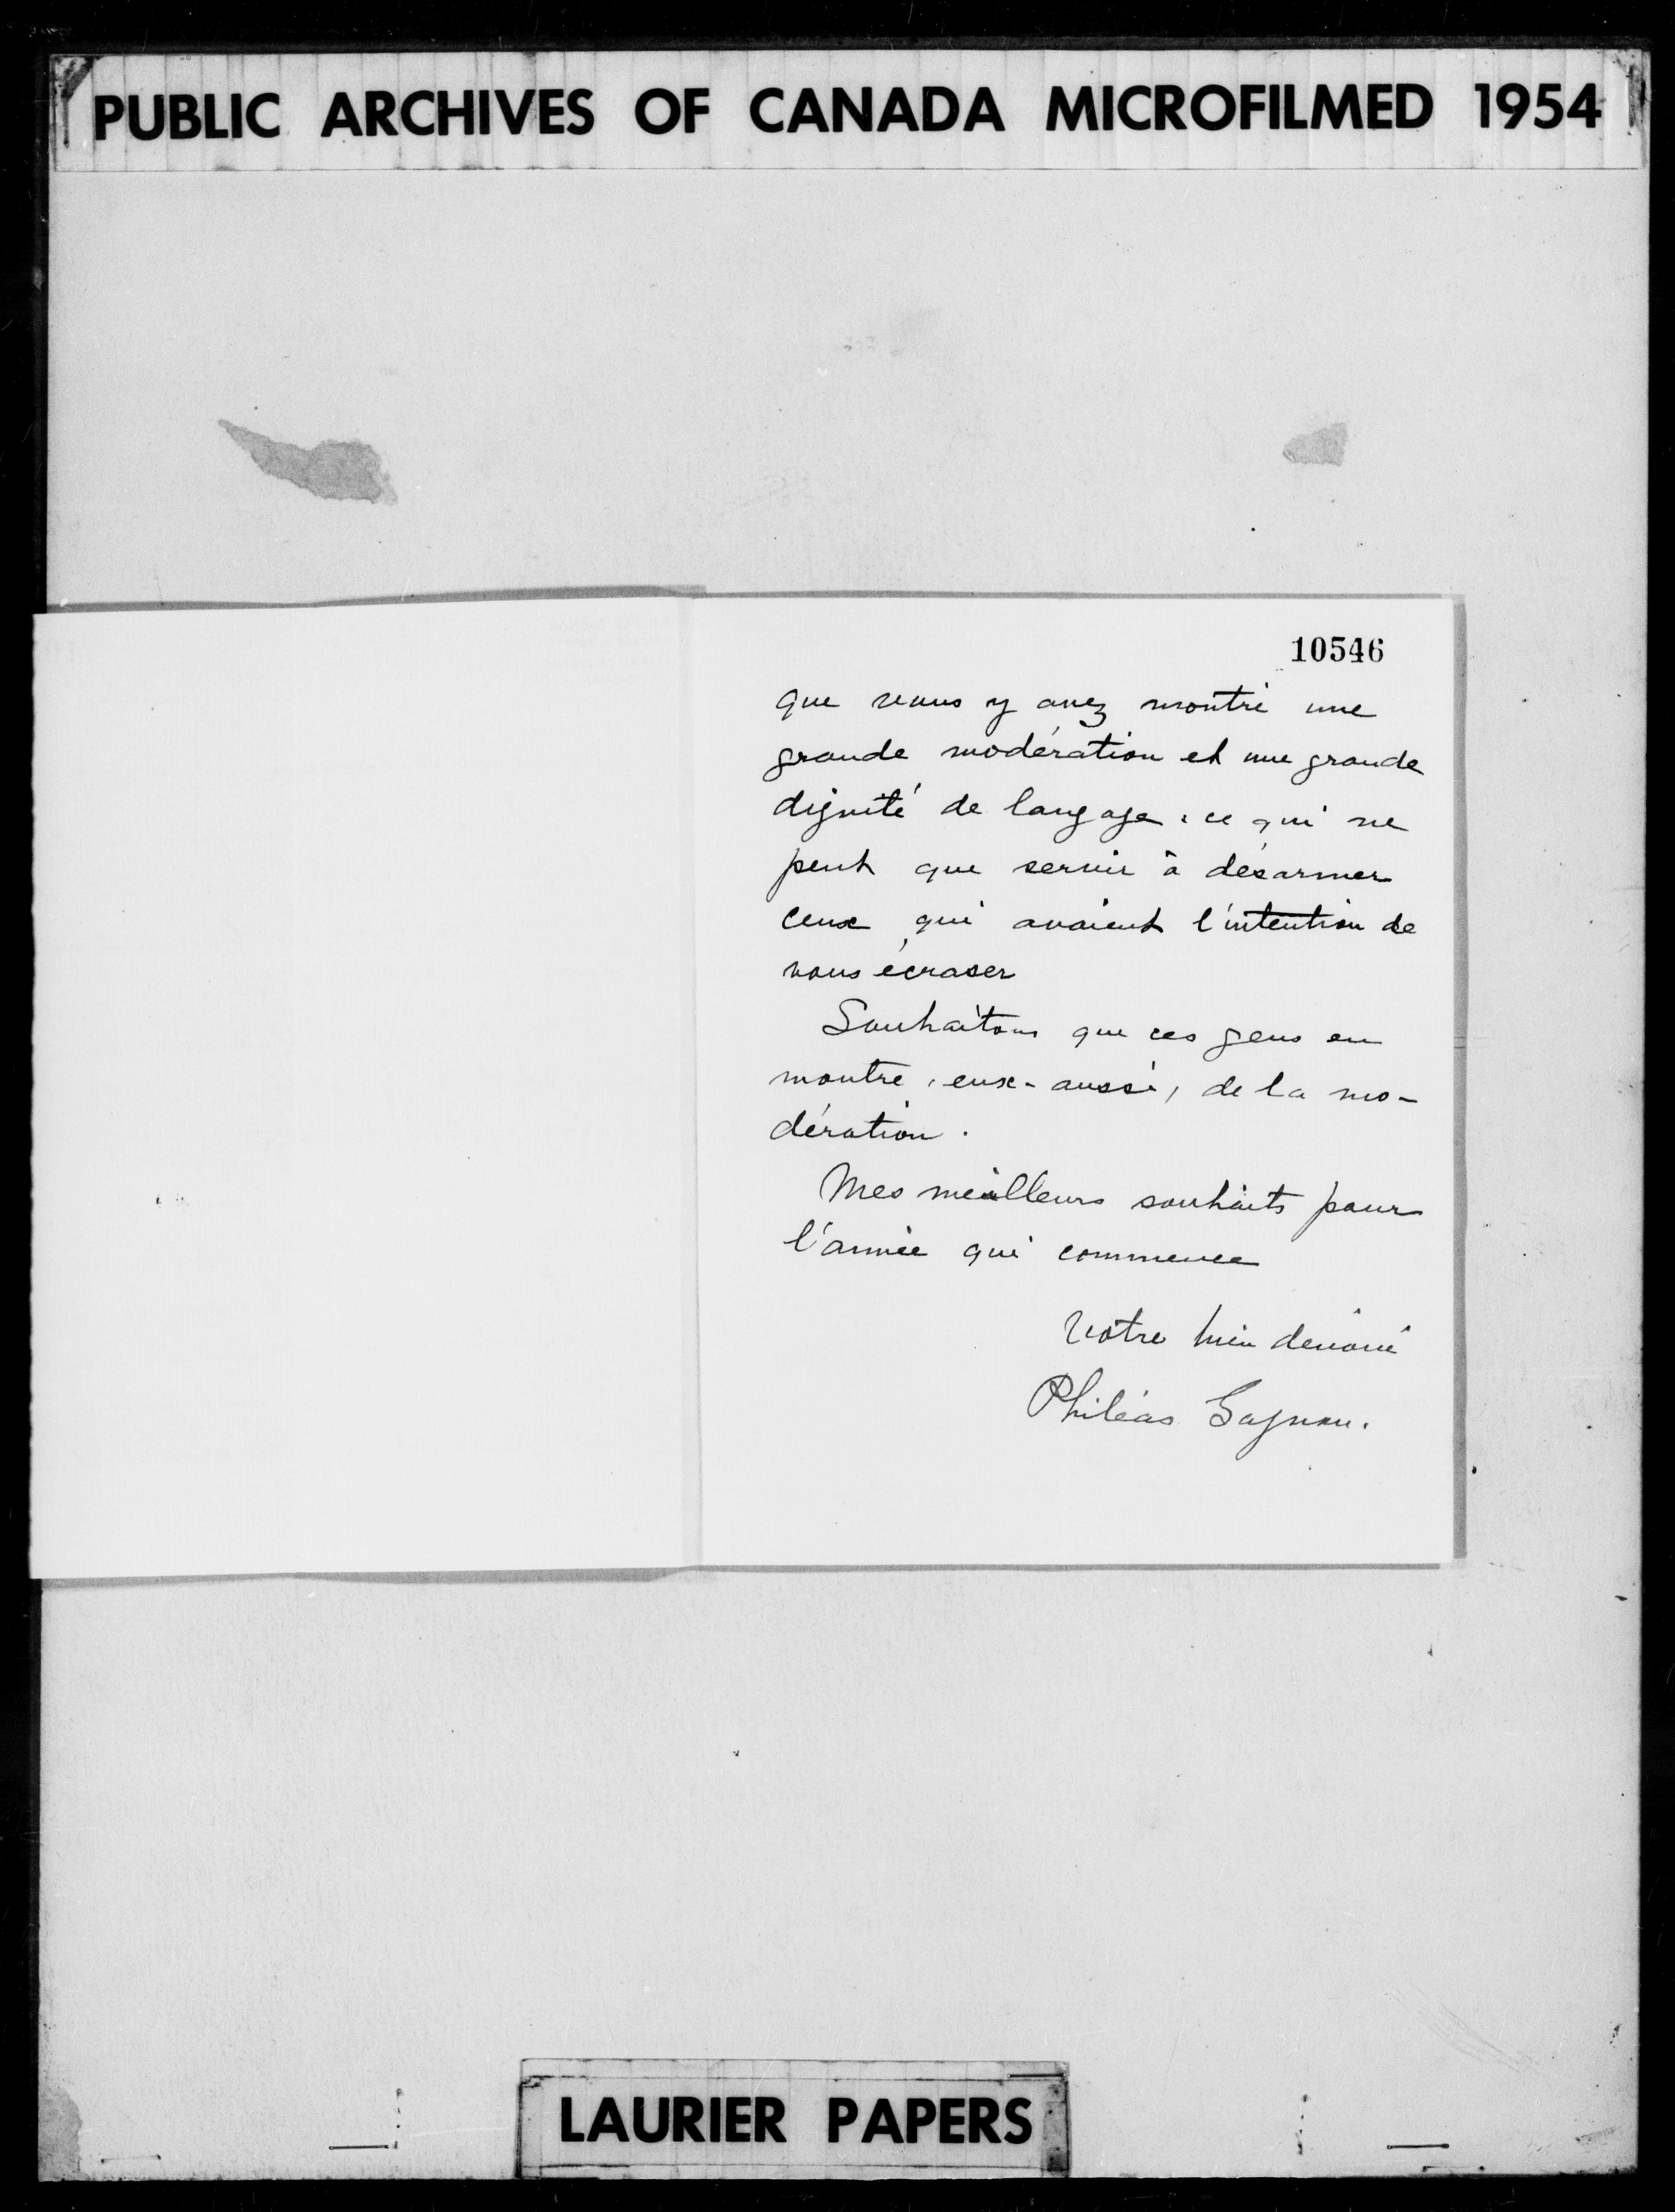 PUBLIC ARCHIVES OF CANADA MICROFILMED 1954
10546
que vous y avez montré une
grande modération et une grande
dignité de langage, ce qui ne
peut que servir à désarmer
ceux qui avaient l'intention de
vous écraser
Souhaitons que ces gens en
montre, eux-aussi, de la mo-
dération.
Mes meilleurs souhaits pour
l'année qui commence
Votre bien dévoué
Philéas Gagnon.
LAURIER PAPERS